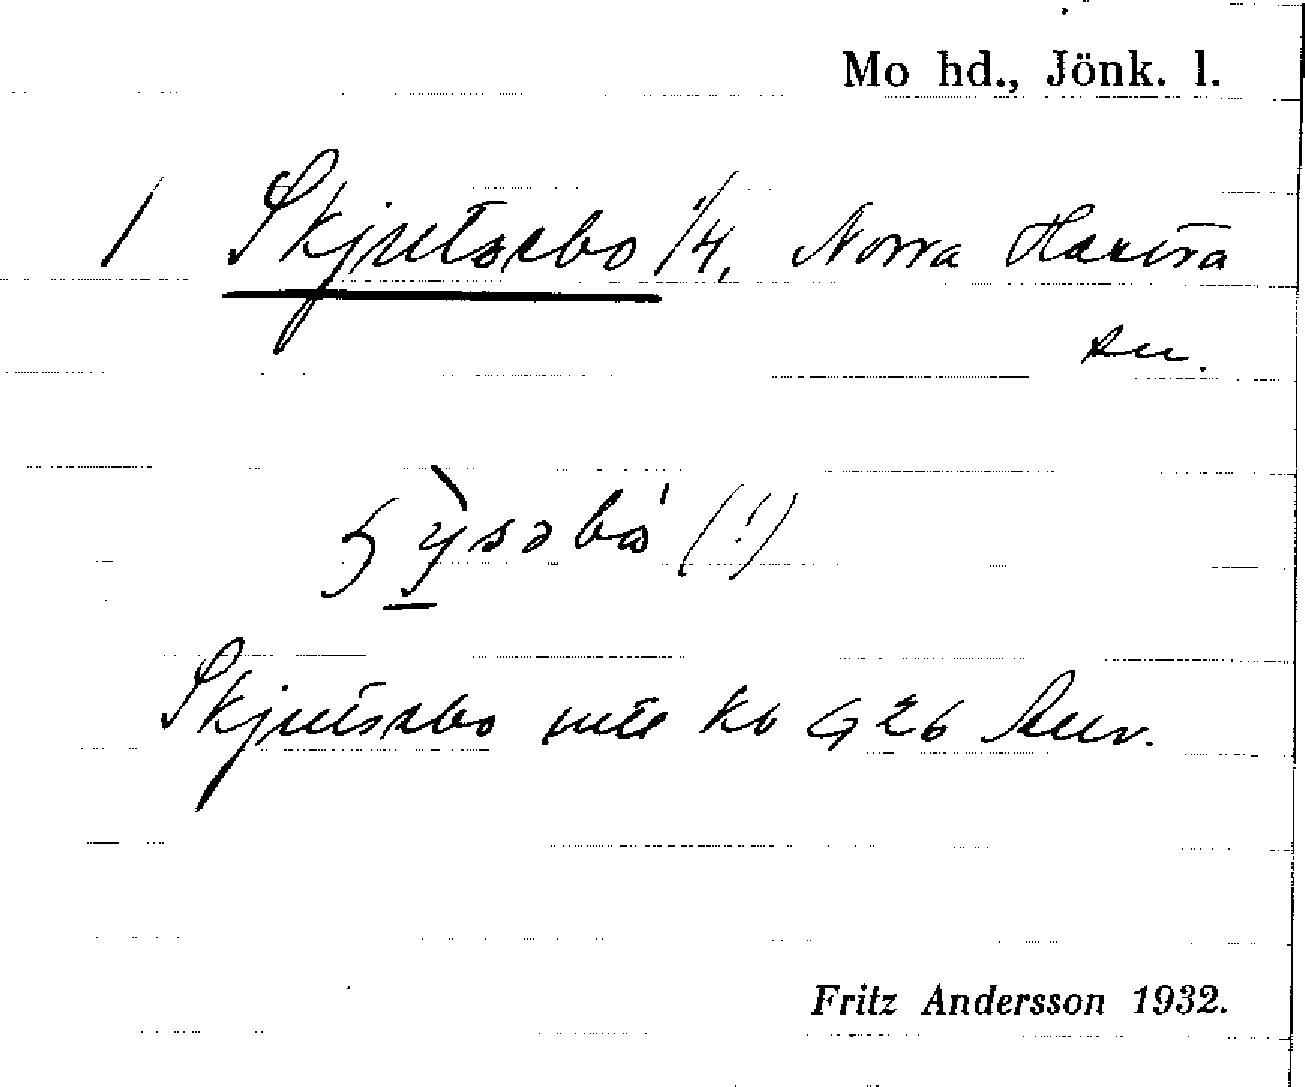 Mo hd., Jönk. l.
1 Skjutsebo 1/4, Norra Hakstra
sn.
ysəbo (!)
Skjutsebo uts kb G 26 Auv.
Fritz Andersson 1932.